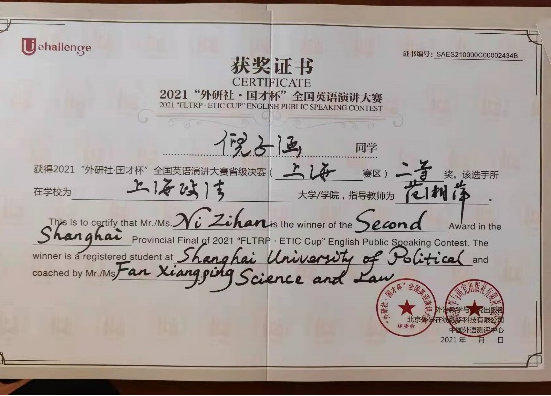 Uchallenge
证书编号：SAES210000C00002434B
获奖证书
CERTIFICATE
2021 “外研社·国才杯” 全国英语演讲大赛
2021 "FLTRP·ETIC CUP" ENGLISH PUBLIC SPEAKING CONTEST
倪子涵 同学
获得2021 “外研社·国才杯” 全国英语演讲大赛省级决赛（ 上海 赛区）二等 奖。该选手所
在学校为 上海政法 大学/学院，指导教师为 范湘萍 .
This is to certify that Mr./Ms. Ni Zihan is the winner of the Second Award in the
Shanghai Provincial Final of 2021 "FLTRP·ETIC Cup" English Public Speaking Contest. The
winner is a registered student at Shanghai University of Political and
coached by Mr./Ms. Fan Xiangping Science and Law
中国外语测评中心
2021年 月 日